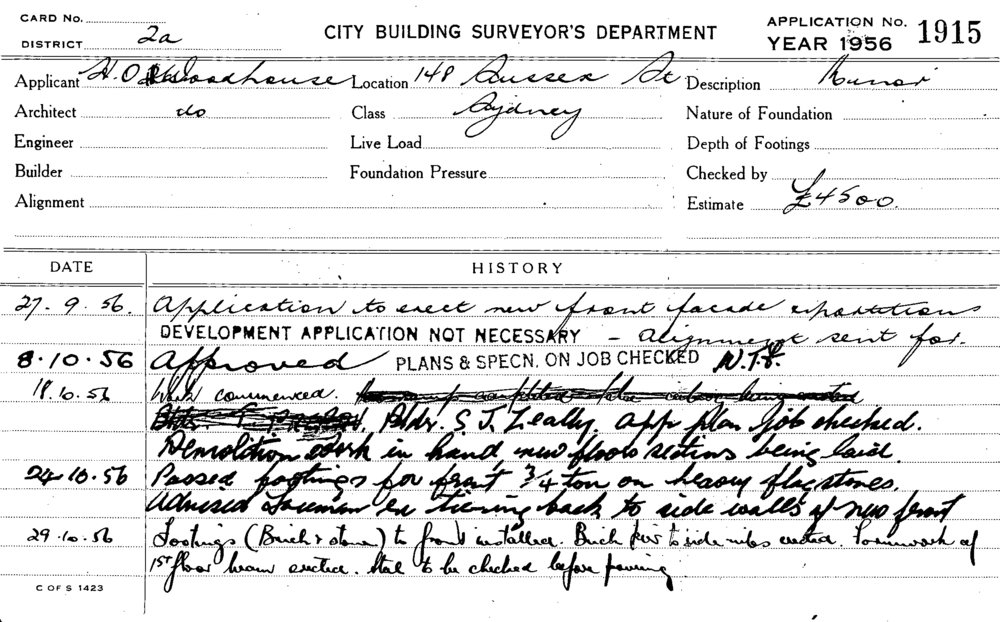 CARD No.
DISTRICT 2a
CITY BUILDING SURVEYOR'S DEPARTMENT
APPLICATION No. 1915
YEAR 1956
Applicant H.O. Woodhouse
Location 148 Sussex St
Description Minor
Architect do
Class Sydney
Nature of Foundation
Engineer
Live Load
Depth of Footings
Builder
Foundation Pressure
Checked by
Alignment
Estimate £4500.
DATE
HISTORY
27.9.56. Application to erect new front facade & partitions
DEVELOPMENT APPLICATION NOT NECESSARY - Alignment sent for.
8.10.56 Approved PLANS & SPECN. ON JOB CHECKED
18.10.56 Work commenced.
Bldr. S. J. App plan job checked.
Demolition work in hand, new floor sections being laid.
24.10.56 Passed footings for front 3/4 ton on heavy flagstones.
Advised foreman re tieing back to side walls of new front
29.10.56 Footings (Brick & stone) to front installed. Brick to side erected. Formwork of
1st floor beam erected. Steel to be checked before pouring
C OF S 1423